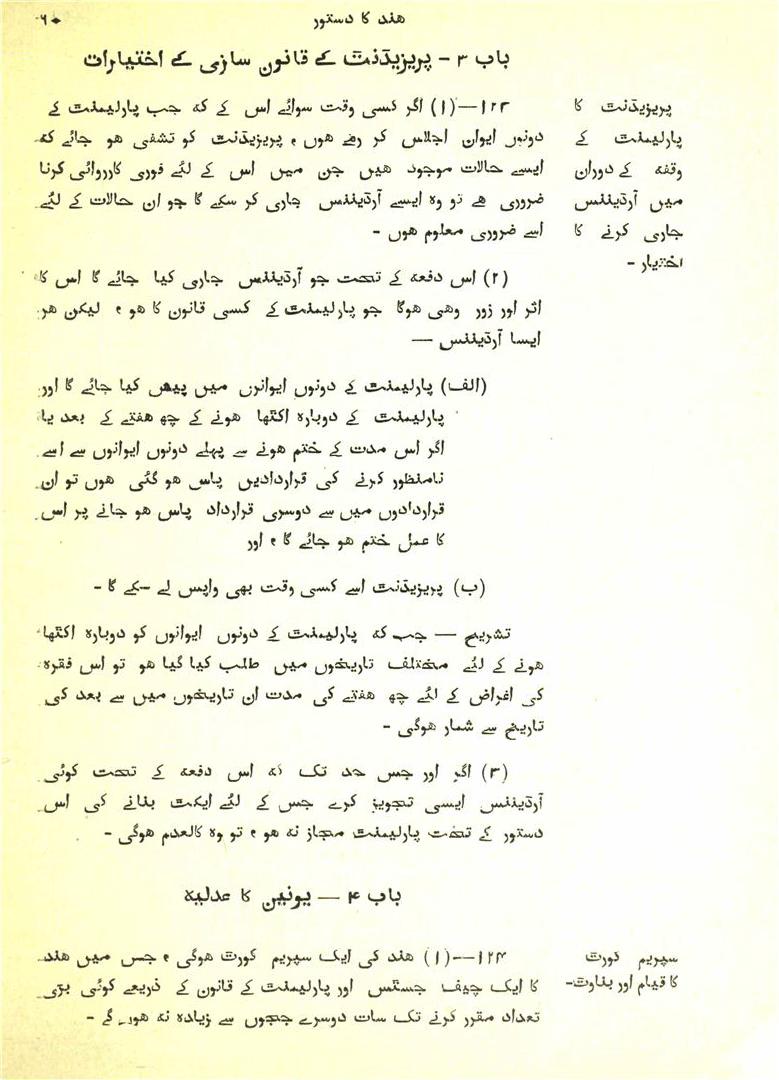 هند کا دستور
۶۰
باب ۳ - پریزیڈنٹ کے قانون سازی کے اختیارات
پریزیڈنٹ کا
پارلیمنٹ کے
وقفہ کے دوران
میں آرڈیننس
جاری کرنے کا
اختیار -
۱۲۳—(۱) اگر کسی وقت سوائے اس کے کہ جب پارلیمنٹ کے
دونوں ایوان اجلاس کر رہے ہوں ، پریزیڈنٹ کو تشفی ہو جائے کہ
ایسے حالات موجود ہیں جن میں اس کے لئے فوری کارروائی کرنا
ضروری ہے تو وہ ایسے آرڈیننس جاری کر سکے گا جو ان حالات کے لئے
اسے ضروری معلوم ہوں -
(۲) اس دفعہ کے تحت جو آرڈیننس جاری کیا جائے گا اس کا
اثر اور زور وہی ہوگا جو پارلیمنٹ کے کسی قانون کا ہو ، لیکن ہر
ایسا آرڈیننس —
(الف) پارلیمنٹ کے دونوں ایوانوں میں پیش کیا جائے گا اور
پارلیمنٹ کے دوبارہ اکٹھا ہونے کے چھ ہفتے کے بعد یا
اگر اس مدت کے ختم ہونے سے پہلے دونوں ایوانوں سے اسے
نامنظور کرنے کی قراردادیں پاس ہو گئی ہوں تو ان
قراردادوں میں سے دوسری قرارداد پاس ہو جانے پر اس
کا عمل ختم ہو جائے گا ، اور
(ب) پریزیڈنٹ اسے کسی وقت بھی واپس لے سکے گا -
تشریح — جب کہ پارلیمنٹ کے دونوں ایوانوں کو دوبارہ اکٹھا
ہونے کے لئے مختلف تاریخوں میں طلب کیا گیا ہو تو اس فقرہ
کی اغراض کے لئے چھ ہفتے کی مدت ان تاریخوں میں سے بعد کی
تاریخ سے شمار ہوگی -
(۳) اگر اور جس حد تک کہ اس دفعہ کے تحت کوئی
آرڈیننس ایسی تجویز کرے جس کے لئے ایکٹ بنانے کی اس
دستور کے تحت پارلیمنٹ مجاز نہ ہو ، تو وہ کالعدم ہوگی -
باب ۴ — یونین کا عدلیہ
سپریم کورٹ
کا قیام اور بناوٹ-
۱۲۴—(۱) ہند کی ایک سپریم کورٹ ہوگی ، جس میں ہند
کا ایک چیف جسٹس اور پارلیمنٹ کے قانون کے ذریعے کوئی بڑی
تعداد مقرر کرنے تک سات دوسرے ججوں سے زیادہ نہ ہوں گے -